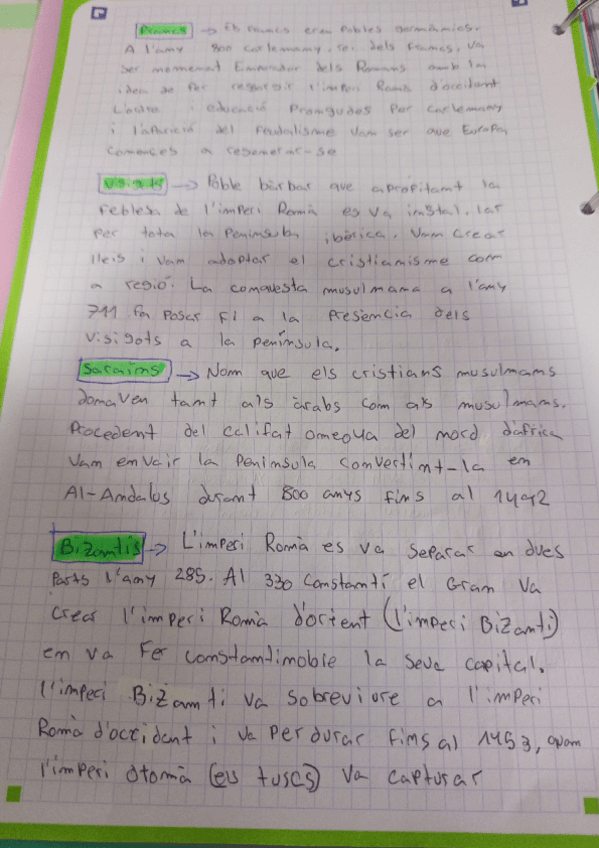 Francs → Els Francs eren Pobles germànics.
A l'any 800 carlemany, rei dels Francs, va
ser nomenat Emperador dels Romans amb la
idea de fer l'imperi Romà d'occident
i educació Promogudes Per carlemany
i l'aparició del Feudalisme van ser que Europa
comences a regenerar-se
Visigots → Poble bàrbar que aprofitant la
feblesa de l'imperi Romà es va instal.lar
per tota la Península ibèrica. Van crear
lleis i van adoptar el cristianisme com
a regió. La conquesta musulmana a l'any
711 fa posar fi a la Presència dels
Visigots a la península.
Sarains → Nom que els cristians musulmans
donaven tant als àrabs com als musulmans.
Procedent del califat omeoya del nord d'àfrica
van envair la Península convertint-la en
Al-Andalus durant 800 anys fins al 1492
Bizantis → L'imperi Romà es va separar en dues
Parts l'any 285. Al 330 Constantí el Gran va
crear l'imperi Romà d'orient (l'imperi Bizantí)
en va Fer constantinoble la seva capital.
l'imperi Bizantí va sobreviure a l'imperi
Romà d'occident i va perdurar fins al 1453, quan
l'imperi otomà (els turcs) va capturar